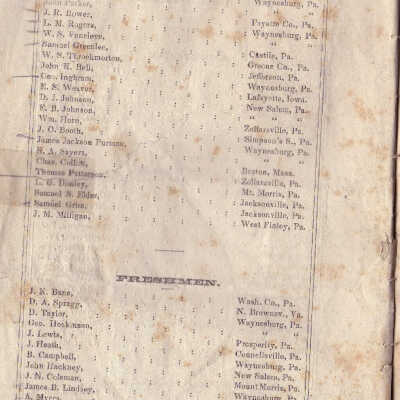 John Parker, Waynesburg, Pa.
J. R. Bower, " "
L. M. Rogers, Fayette Co., Pa.
W. S. Vanclove, Waynesburg, Pa.
Samuel Greenlee, " "
W. S. Throckmorton, Castile, Pa.
John K. Bell, Greene Co., Pa.
Geo. Ingbram, Jefferson, Pa.
E. S. Weaver, Waynesburg, Pa.
D. J. Johnson, Lafayette, Iowa.
E. B. Johnson, New Salem, Pa.
Wm. Horn, " "
J. O. Booth, Zollarsville, Pa.
James Jackson Purman, Simpson's S., Pa.
R. A. Sayers, Waynesburg, Pa.
Chas. " "
Thomas Patterson, Boston, Mass.
L. G. Zollarsville, Pa.
Samuel S. Elder, Mt. Morris, Pa.
Samuel Grim, Jacksonville, Pa.
J. M. Milligan, Jacksonville, Pa.
West Finley, Pa.
FRESHMEN.
J. N. Bane, Wash. Co., Pa.
D. A. Spragg, N. Brownsv., Va.
D. Taylor, Waynesburg, Pa.
Geo. Hoskinson, " "
J. Lewis, Prosperity, Pa.
J. Heath, Connellsville, Pa.
B. Campbell, Waynesburg, Pa.
John Hackney, New Salem, Pa.
J. N. Coleman, Mount Morris, Pa.
James B. Lindsey, Waynesburg, Pa.
A. Myers,